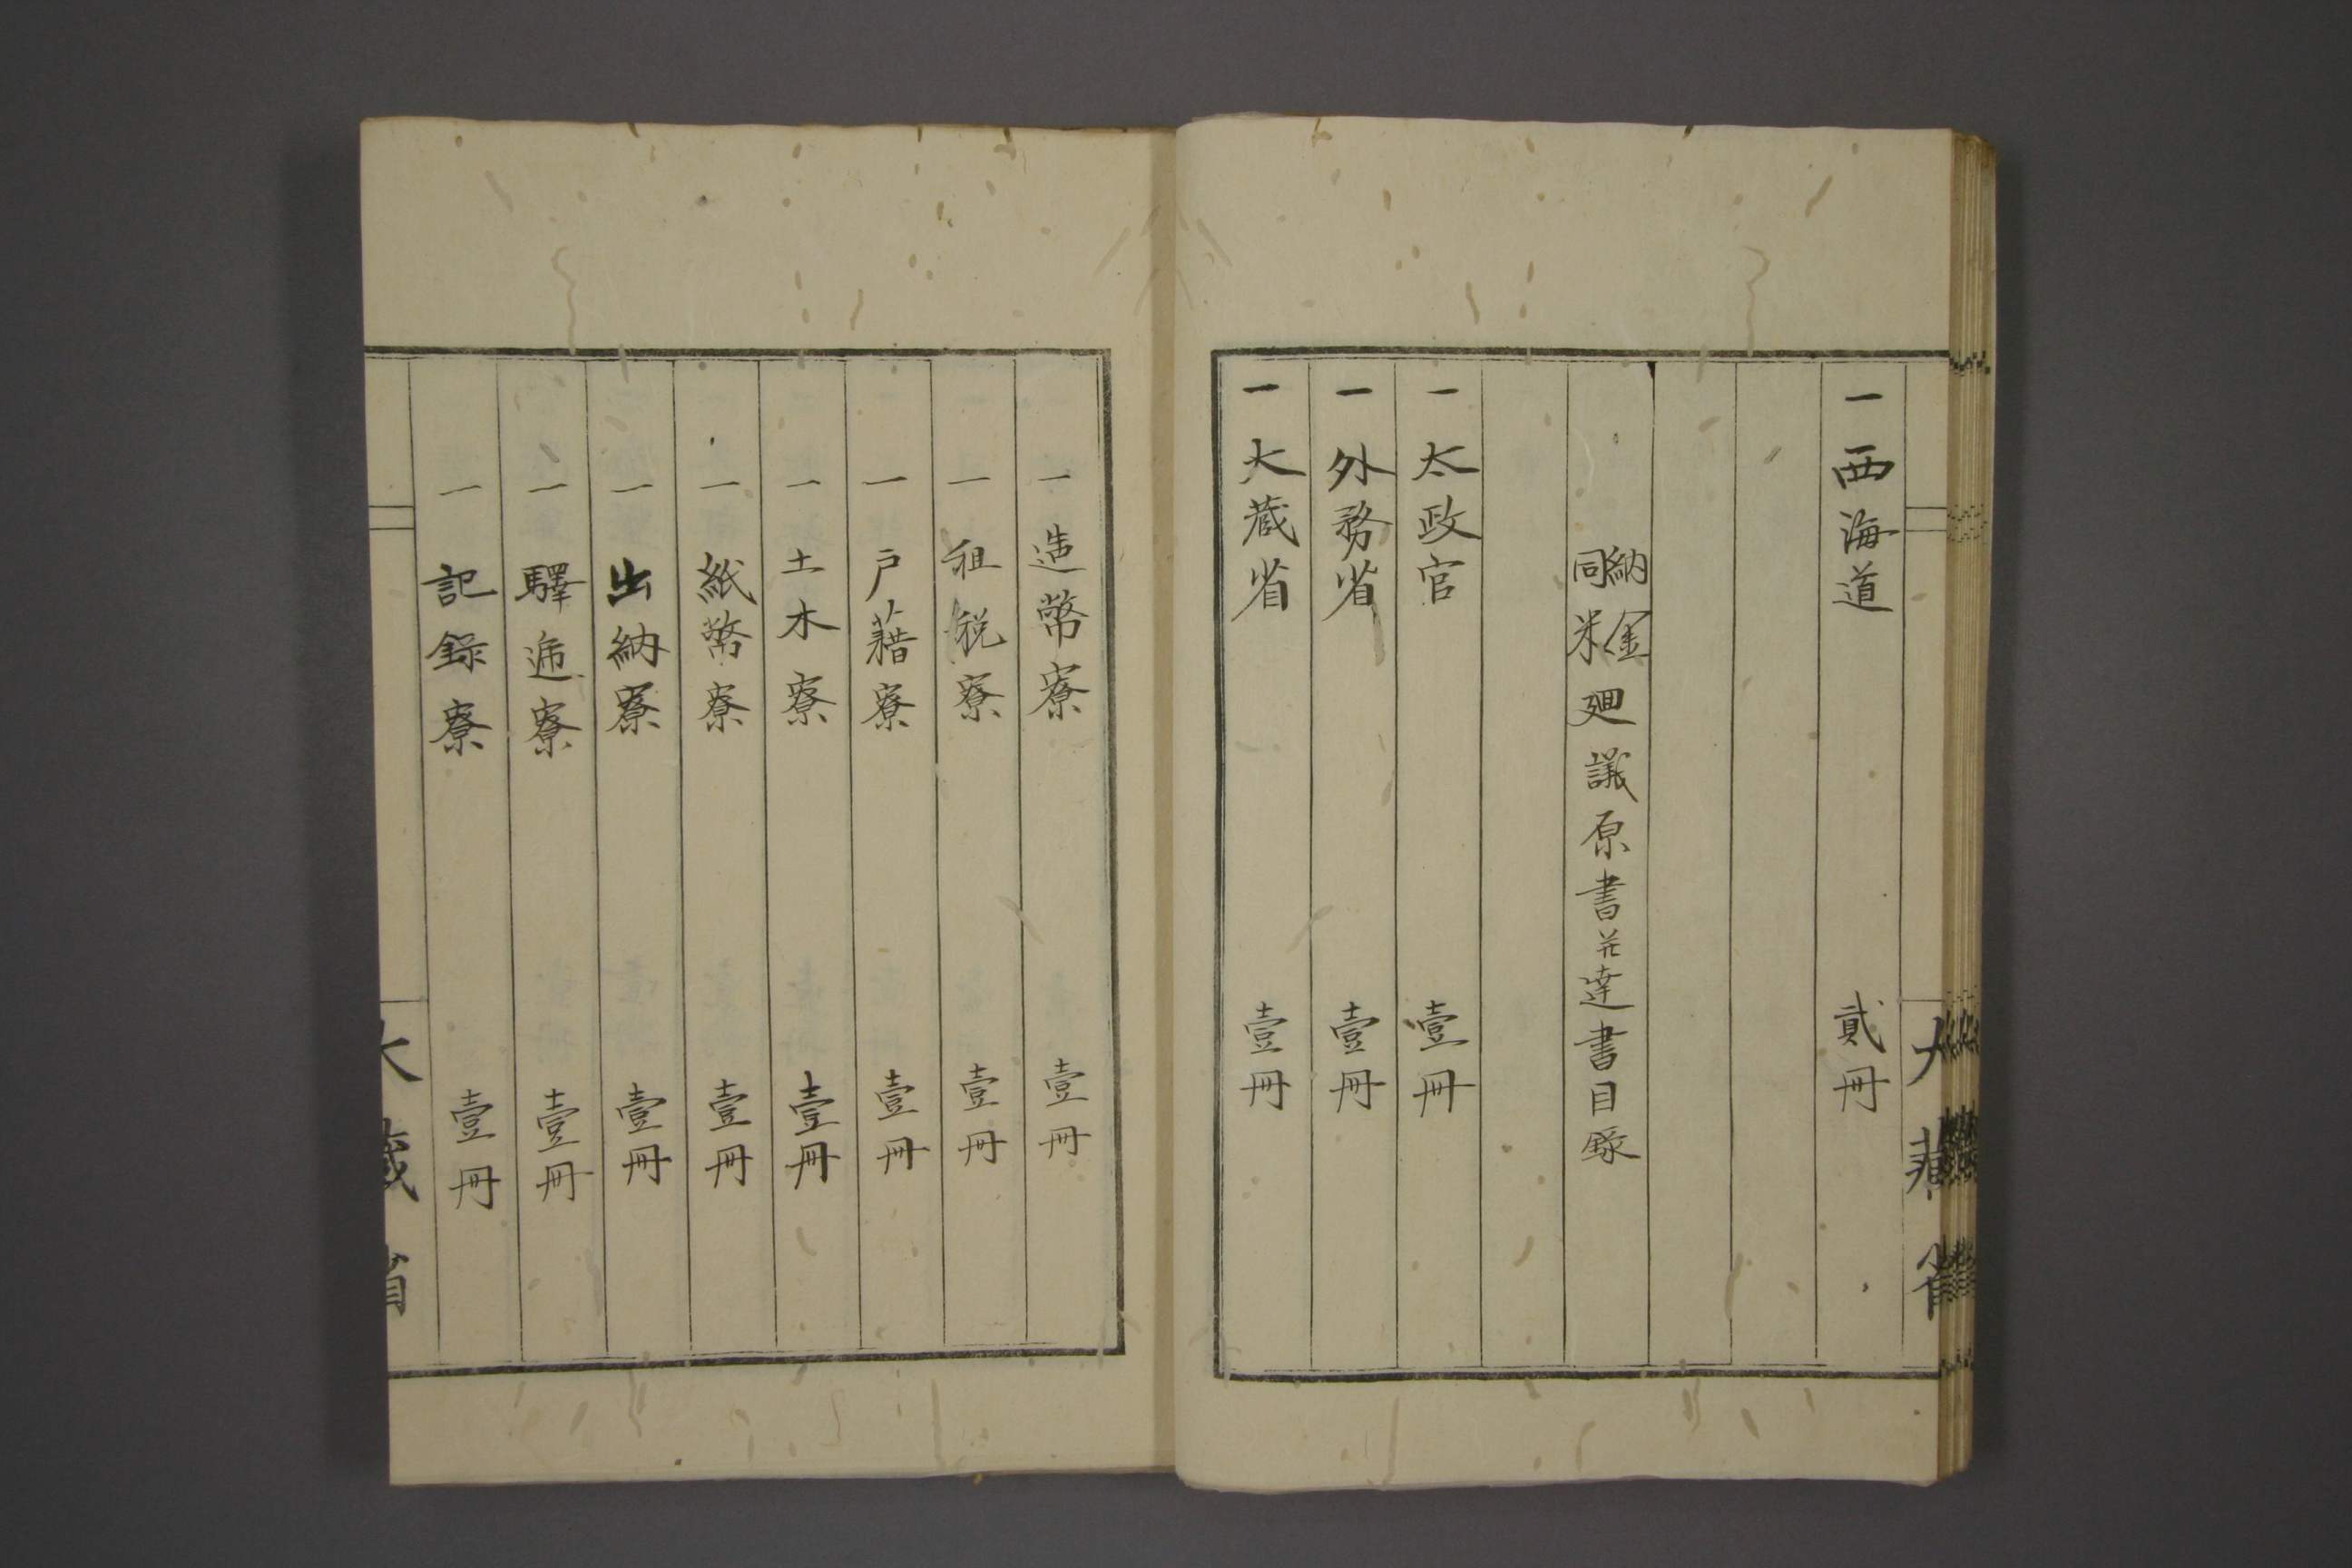 一西海道 貳冊
納金
同米
廻議原書并達書目録
一太政官 壹冊
一外務省 壹冊
一大蔵省 壹冊
一造幣寮 壹冊
一租税寮 壹冊
一戸藉寮 壹冊
一土木寮 壹冊
一紙幣寮 壹冊
一出納寮 壹冊
一驛逓寮 壹冊
一記録寮 壹冊
大蔵省
大藏省